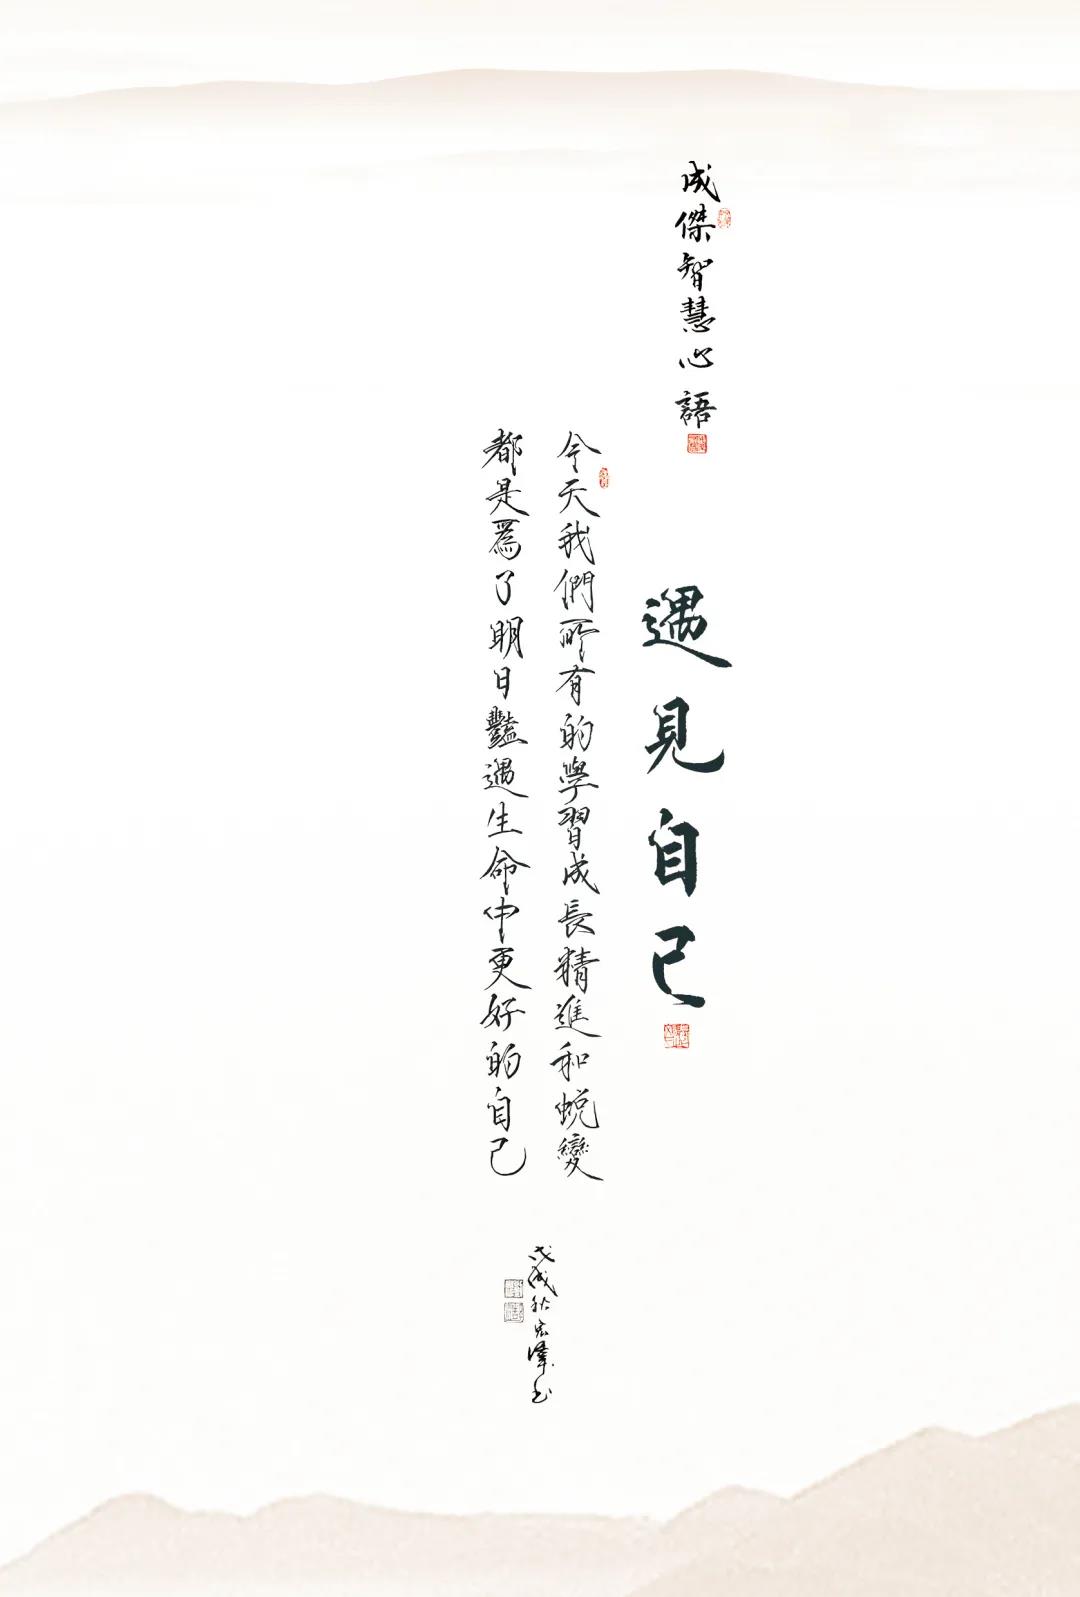 成傑智慧心語
遇見自己
今天我們所有的學習成長精進和蛻變
都是爲了明日豔遇生命中更好的自己
戊戌秋宏偉書